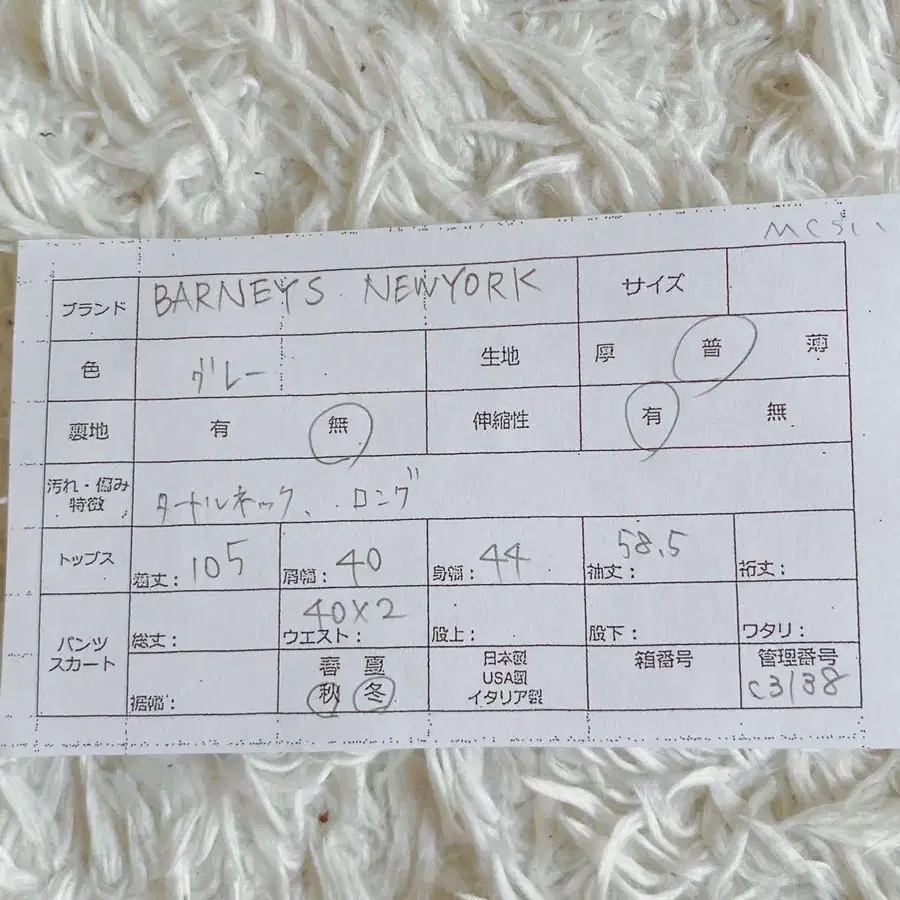 ブランド BARNEYS NEWYORK サイズ
色 グレー 生地 厚 普 薄
裏地 有 無 伸縮性 有 無
汚れ・傷み
特徴 タートルネック、ロング
トップス 着丈: 105 肩幅: 40 身幅: 44 袖丈: 58.5 裄丈:
パンツ
スカート 総丈: ウエスト: 40×2 股上: 股下: ワタリ:
裾幅: 春 夏
秋 冬
日本製
USA製
イタリア製
箱番号
管理番号
C3138